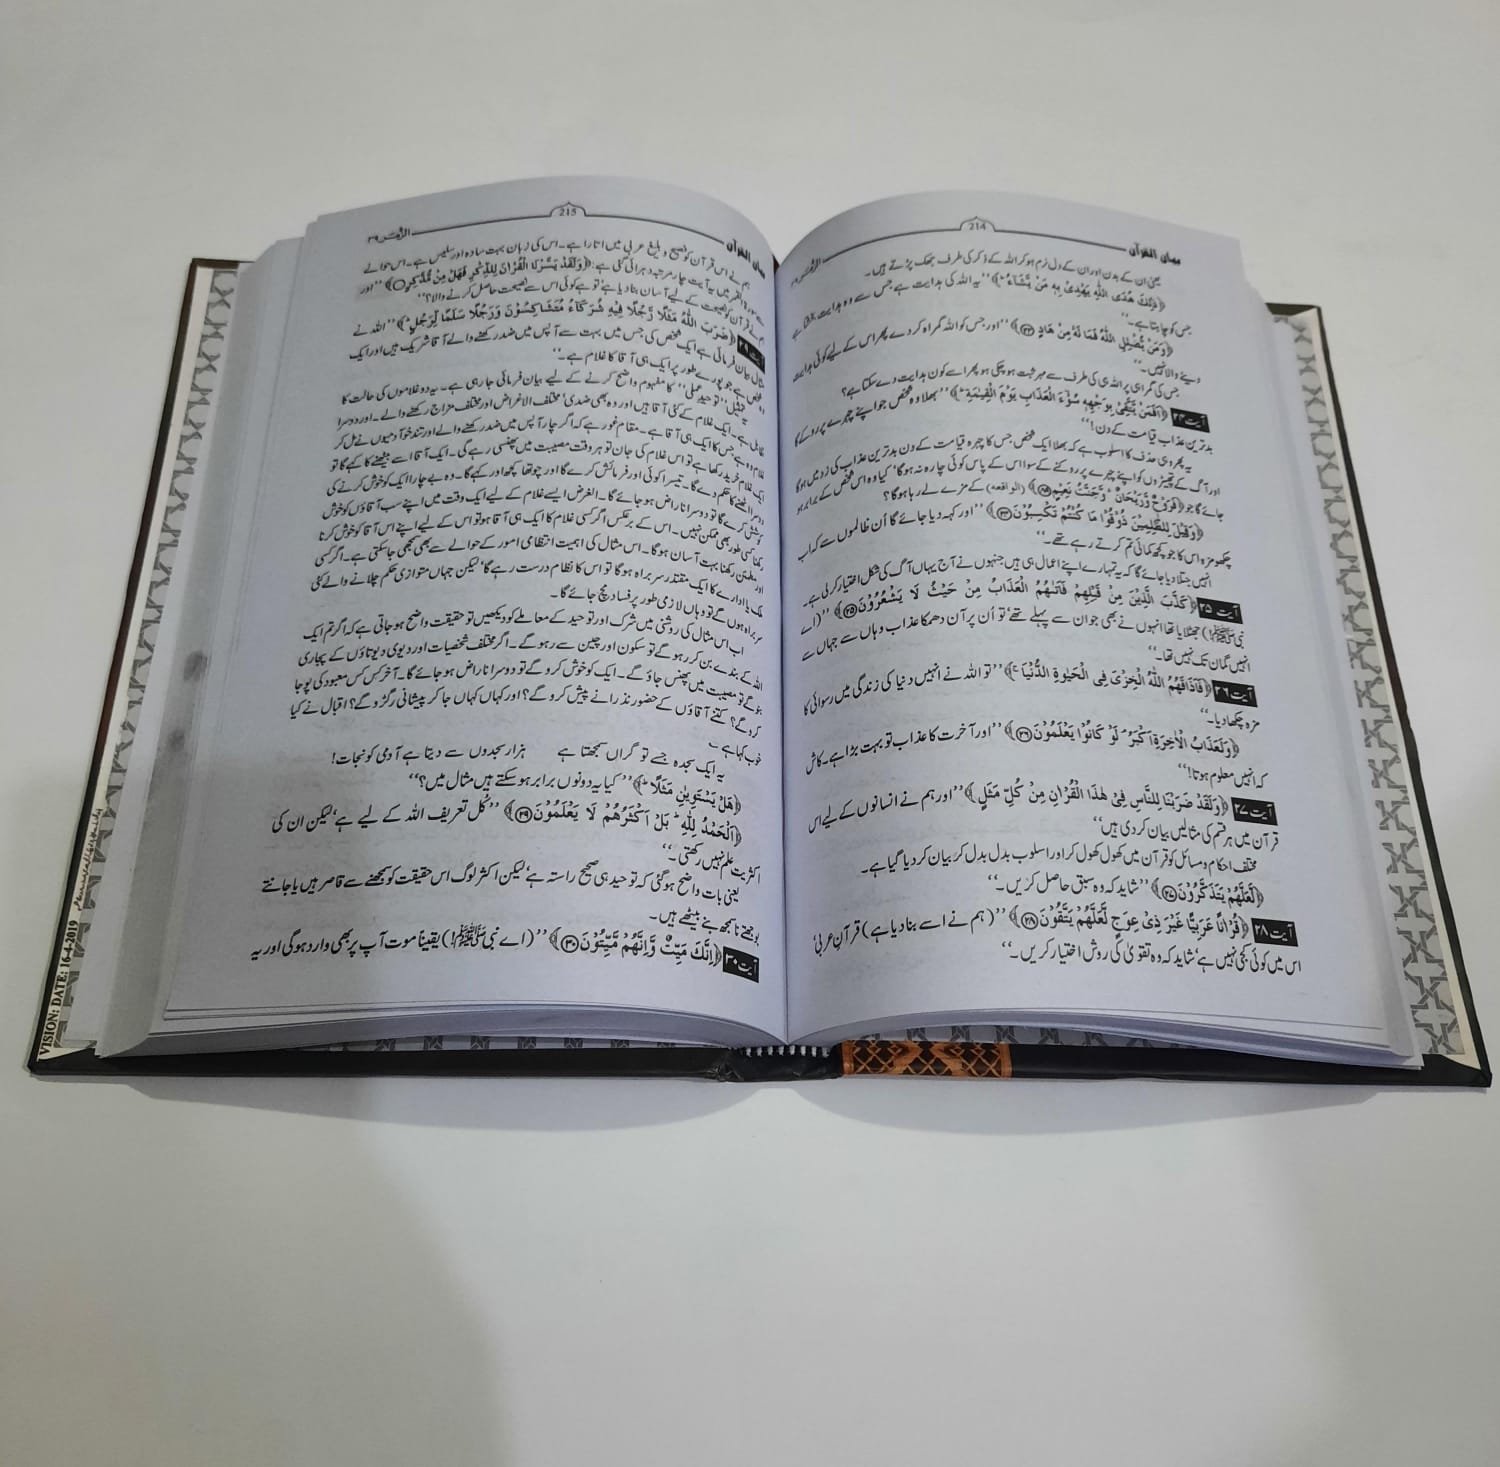 بیان القرآن 214 الزُّمَر ۳۹
یعنی ان کے بدن اور ان کے دل نرم ہو کر اللہ کے ذکر کی طرف جھک پڑتے ہیں۔
﴿ذٰلِكَ هُدَى اللّٰهِ يَهْدِىْ بِهٖ مَنْ يَّشَآءُ ؕ﴾ ’’یہ اللہ کی ہدایت ہے جس سے وہ ہدایت بخشتا ہے
جس کو چاہتا ہے۔‘‘
﴿وَمَنْ يُّضْلِلِ اللّٰهُ فَمَا لَهٗ مِنْ هَادٍ ﴿۲۳﴾﴾ ’’اور جس کو اللہ گمراہ کر دے پھر اس کے لیے کوئی ہدایت
دینے والا نہیں۔‘‘
جس کی گمراہی پر اللہ ہی کی طرف سے مہر ثبت ہو چکی ہو پھر اسے کون ہدایت دے سکتا ہے؟
آیت ۲۴ ﴿اَفَمَنْ يَّتَّقِىْ بِوَجْهِهٖ سُوْٓءَ الْعَذَابِ يَوْمَ الْقِيٰمَةِ ؕ﴾ ’’بھلا وہ شخص جو اپنے چہرے پر روکے گا
بدترین عذاب قیامت کے دن!‘‘
یہ پھر وہی حذف کا اسلوب ہے کہ بھلا ایک شخص جس کا چہرہ قیامت کے دن بدترین عذاب کی زد میں ہوگا
اور آگ کے تھپیڑوں کو اپنے چہرے پر روکنے کے سوا اس کے پاس کوئی چارہ نہ ہوگا‘ کیا وہ اس شخص کے برابر ہو
جائے گا جو ﴿فَرَوْحٌ وَّرَيْحَانٌ ۙ وَّجَنَّتُ نَعِيْمٍ﴾ (الواقعہ) کے مزے لے رہا ہوگا؟
﴿وَقِيْلَ لِلظّٰلِمِيْنَ ذُوْقُوْا مَا كُنْتُمْ تَكْسِبُوْنَ ﴿۲۴﴾﴾ ’’اور کہہ دیا جائے گا اُن ظالموں سے کہ اب
چکھو مزہ اس کا جو کچھ کمائی تم کرتے رہے تھے۔‘‘
انہیں جتلا دیا جائے گا کہ یہ تمہارے اپنے اعمال ہی ہیں جنہوں نے آج یہاں آگ کی شکل اختیار کر لی ہے۔
آیت ۲۵ ﴿كَذَّبَ الَّذِيْنَ مِنْ قَبْلِهِمْ فَاَتٰىهُمُ الْعَذَابُ مِنْ حَيْثُ لَا يَشْعُرُوْنَ ﴿۲۵﴾﴾ ’’(اے
نبی ﷺ!) جھٹلایا تھا انہوں نے بھی جو ان سے پہلے تھے تو اُن پر آن دھمکا عذاب وہاں سے جہاں سے
انہیں گمان تک نہیں تھا۔‘‘
آیت ۲۶ ﴿فَاَذَاقَهُمُ اللّٰهُ الْخِزْىَ فِى الْحَيٰوةِ الدُّنْيَا ۚ﴾ ’’تو اللہ نے انہیں دنیا کی زندگی میں رسوائی کا
مزہ چکھا دیا۔‘‘
﴿وَلَعَذَابُ الْاٰخِرَةِ اَكْبَرُ ۘ لَوْ كَانُوْا يَعْلَمُوْنَ ﴿۲۶﴾﴾ ’’اور آخرت کا عذاب تو بہت بڑا ہے۔ کاش
کہ انہیں معلوم ہوتا!‘‘
آیت ۲۷ ﴿وَلَقَدْ ضَرَبْنَا لِلنَّاسِ فِىْ هٰذَا الْقُرْاٰنِ مِنْ كُلِّ مَثَلٍ﴾ ’’اور ہم نے انسانوں کے لیے اس
قرآن میں ہر قسم کی مثالیں بیان کر دی ہیں‘‘
مختلف احکام و مسائل کو قرآن میں کھول کھول کر اور اسلوب بدل بدل کر بیان کر دیا گیا ہے۔
﴿لَّعَلَّهُمْ يَتَذَكَّرُوْنَ ﴿۲۷﴾﴾ ’’شاید کہ وہ سبق حاصل کریں۔‘‘
آیت ۲۸ ﴿قُرْاٰنًا عَرَبِيًّا غَيْرَ ذِىْ عِوَجٍ لَّعَلَّهُمْ يَتَّقُوْنَ ﴿۲۸﴾﴾ ’’(ہم نے اسے بنا دیا ہے) قرآنِ عربی‘
اس میں کوئی کجی نہیں ہے‘ شاید کہ وہ تقویٰ کی روش اختیار کریں۔‘‘
بیان القرآن 215 الزُّمَر ۳۹
ہم نے اس قرآن کو فصیح و بلیغ عربی میں اتارا ہے۔ اس کی زبان بہت سادہ اور سلیس ہے۔ اس حوالے
سے سورۃ القمر میں یہ آیت چار مرتبہ دہرائی گئی ہے: ﴿وَلَقَدْ يَسَّرْنَا الْقُرْاٰنَ لِلذِّكْرِ فَهَلْ مِنْ مُّدَّكِرٍ﴾ ’’اور
ہم نے قرآن کو نصیحت کے لیے آسان بنا دیا ہے‘ تو ہے کوئی اس سے نصیحت حاصل کرنے والا؟‘‘
آیت ۲۹ ﴿ضَرَبَ اللّٰهُ مَثَلًا رَّجُلًا فِيْهِ شُرَكَآءُ مُتَشٰكِسُوْنَ وَرَجُلًا سَلَمًا لِّرَجُلٍ ؕ﴾ ’’اللہ نے
مثال بیان فرمائی ہے ایک شخص کی جس میں بہت سے آپس میں ضد رکھنے والے آقا شریک ہیں اور ایک
وہ شخص ہے جو پورے طور پر ایک ہی آقا کا غلام ہے۔‘‘
یہ تمثیل ’’توحید عملی‘‘ کا مفہوم واضح کرنے کے لیے بیان فرمائی جا رہی ہے۔ یہ دو غلاموں کی حالت کا
تقابل ہے۔ ایک غلام کے کئی آقا ہیں اور وہ بھی ضدی‘ مختلف الاغراض اور مختلف مزاج رکھنے والے۔ اور دوسرا
غلام وہ ہے جس کا ایک ہی آقا ہے۔ مقامِ غور ہے کہ اگر چار آپس میں ضد رکھنے والے اور تند خو آدمیوں نے مل کر
ایک غلام خرید رکھا ہے تو اس غلام کی جان تو ہر وقت مصیبت میں پھنسی رہے گی۔ ایک آقا اسے بیٹھنے کا کہے گا تو
دوسرا اٹھنے کا حکم دے گا۔ تیسرا کوئی اور فرمائش کرے گا اور چوتھا کچھ اور کہے گا۔ وہ بے چارا ایک کو خوش کرنے کی
کوشش کرے گا تو دوسرا ناراض ہو جائے گا۔ الغرض ایسے غلام کے لیے ایک وقت میں اپنے سب آقاؤں کو خوش
رکھنا کسی طور بھی ممکن نہیں۔ اس کے برعکس اگر کسی غلام کا ایک ہی آقا ہو تو اس کے لیے اپنے اس آقا کو خوش کرنا
اور مطمئن رکھنا بہت آسان ہوگا۔ اس مثال کی اہمیت انتظامی امور کے حوالے سے بھی سمجھی جا سکتی ہے۔ اگر کسی
ملک یا ادارے کا ایک مقتدر سربراہ ہوگا تو اس کا نظام درست رہے گا‘ لیکن جہاں متوازی حکم چلانے والے کئی
سربراہ ہوں گے تو وہاں لازمی طور پر فساد مچ جائے گا۔
اب اس مثال کی روشنی میں شرک اور توحید کے معاملے کو دیکھیں تو حقیقت واضح ہو جاتی ہے کہ اگر تم ایک
اللہ کے بندے بن کر رہو گے تو سکون اور چین سے رہو گے۔ اگر مختلف شخصیات اور دیوی دیوتاؤں کے پجاری
بنو گے تو مصیبت میں پھنس جاؤ گے۔ ایک کو خوش کرو گے تو دوسرا ناراض ہو جائے گا۔ آخر کس کس معبود کی پوجا
کرو گے؟ کتنے آقاؤں کے حضور نذرانے پیش کرو گے؟ اور کہاں کہاں جا کر پیشانی رگڑو گے؟ اقبال نے کیا
خوب کہا ہے ؎
یہ ایک سجدہ جسے تو گراں سمجھتا ہے ہزار سجدوں سے دیتا ہے آدمی کو نجات!
﴿هَلْ يَسْتَوِيٰنِ مَثَلًا ؕ﴾ ’’کیا یہ دونوں برابر ہو سکتے ہیں مثال میں؟‘‘
﴿اَلْحَمْدُ لِلّٰهِ ؕ بَلْ اَكْثَرُهُمْ لَا يَعْلَمُوْنَ ﴿۲۹﴾﴾ ’’کُل تعریف اللہ کے لیے ہے‘ لیکن ان کی
اکثریت علم نہیں رکھتی۔‘‘
یعنی بات واضح ہو گئی کہ توحید ہی صحیح راستہ ہے‘ لیکن اکثر لوگ اس حقیقت کو سمجھنے سے قاصر ہیں یا جانتے
بوجھتے ناسمجھ بنے بیٹھے ہیں۔
آیت ۳۰ ﴿اِنَّكَ مَيِّتٌ وَّاِنَّهُمْ مَّيِّتُوْنَ ﴿۳۰﴾﴾ ’’(اے نبی ﷺ!) یقیناً موت آپ پر بھی وارد ہوگی اور یہ
VISION: DATE: 16-4-2019